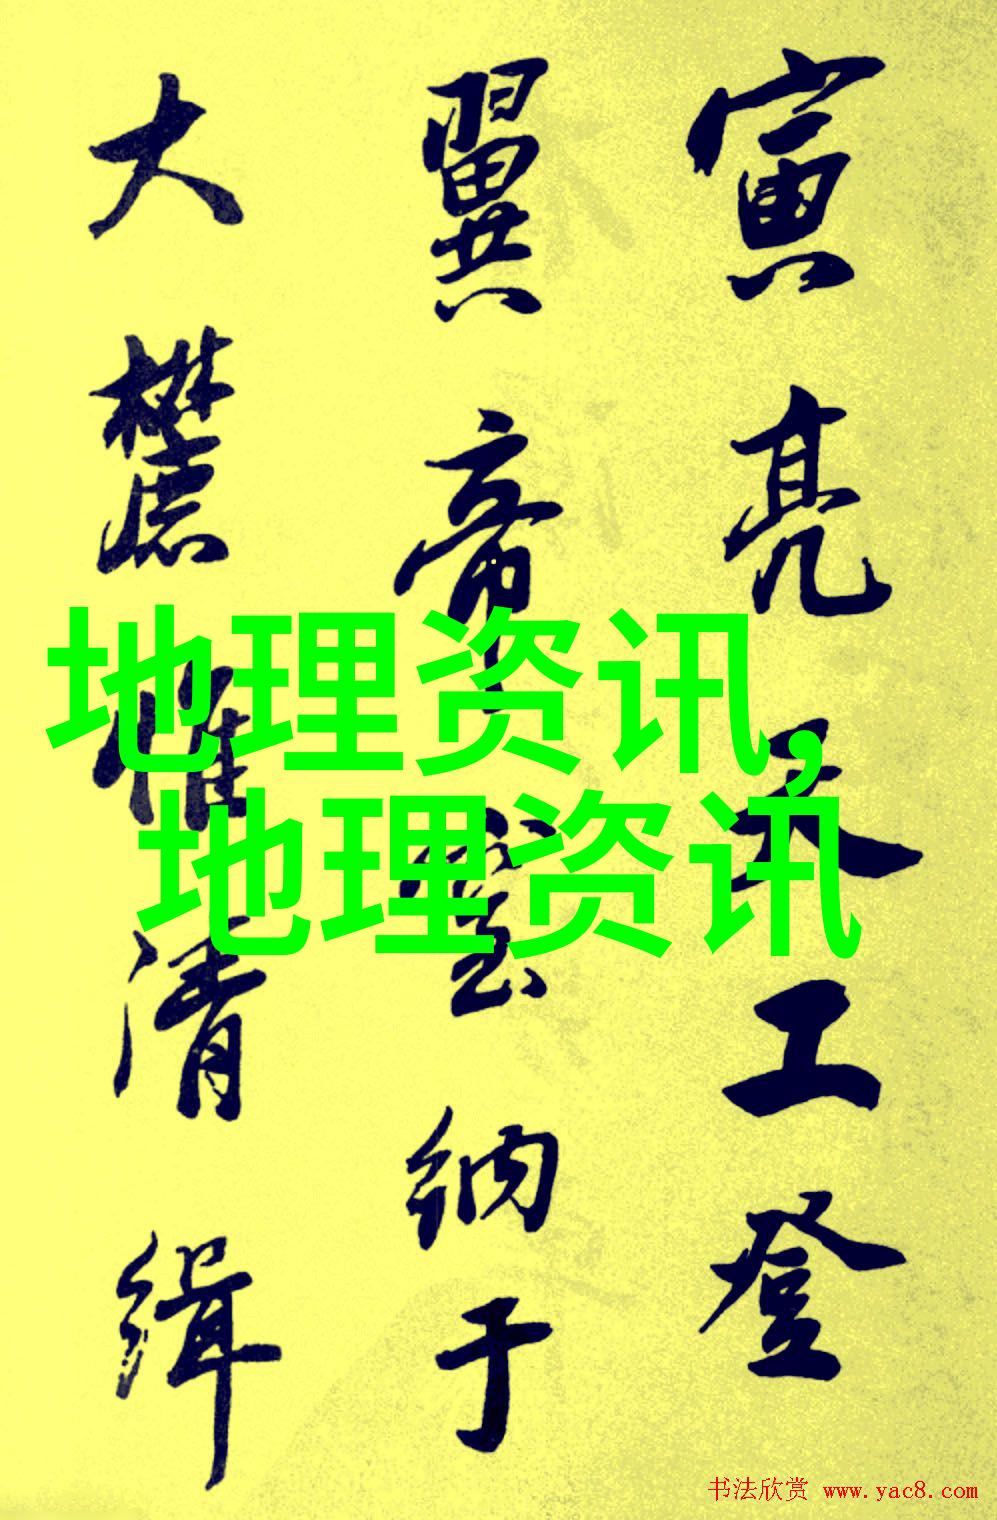 寅亮天工登
翼帝室纳于
大麓惟清缉
地理资讯,
地理资讯
书法欣赏 www.yac8.com